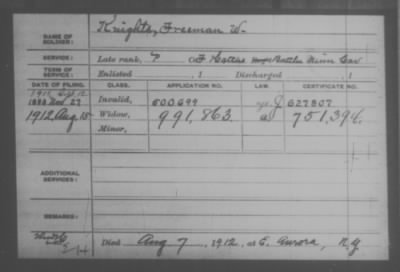 NAME OF SOLDIER: Knights, Freeman W.
SERVICE: Late rank, P Co. F Battln Minn Cav
TERM OF SERVICE: Enlisted , 1 Discharged , 1
DATE OF FILING. CLASS. APPLICATION NO. LAW. CERTIFICATE NO.
1888 Nov. 27 Invalid, 500,699 J 627807
1912 Aug 15 Widow, 991,863 a 751,394
Minor,
ADDITIONAL SERVICES:
REMARKS:
Died Aug 7, 1912, at E. Aurora, N.Y.